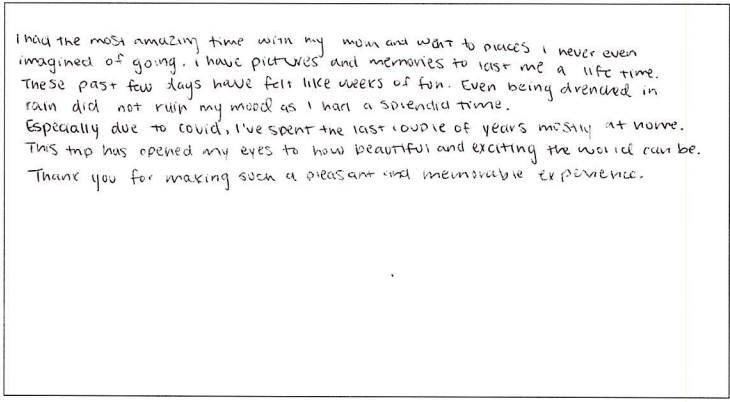 i had the most amazing time with my mom and went to places i never even
imagined of going. i have pictures and memories to last me a life time.
These past few days have felt like weeks of fun. Even being drenched in
rain did not ruin my mood as i had a splendid time.
Especially due to covid, I've spent the last couple of years mostly at home.
This trip has opened my eyes to how beautiful and exciting the world can be.
Thank you for making such a pleasant and memorable experience.